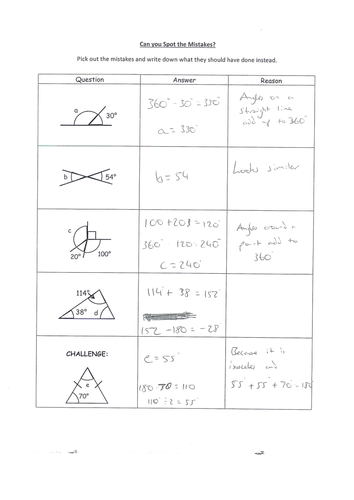 Can you Spot the Mistakes?
Pick out the mistakes and write down what they should have done instead.
Question Answer Reason
a 30°
360° - 30° = 330°
a = 330°
Angles on a
straight line
add up to 360°
b 54°
b = 54
Looks similar
c
20° 100°
100 + 20 = 120°
360° - 120 = 240°
c = 240°
Angles around a
point add to
360°
114°
38° d
114° + 38 = 152
152 - 180 = -28
CHALLENGE:
e
70°
e = 55°
180 70 = 110
110° ÷ 2 = 55°
Because it is
isosceles and
55° + 55° + 70 = 180